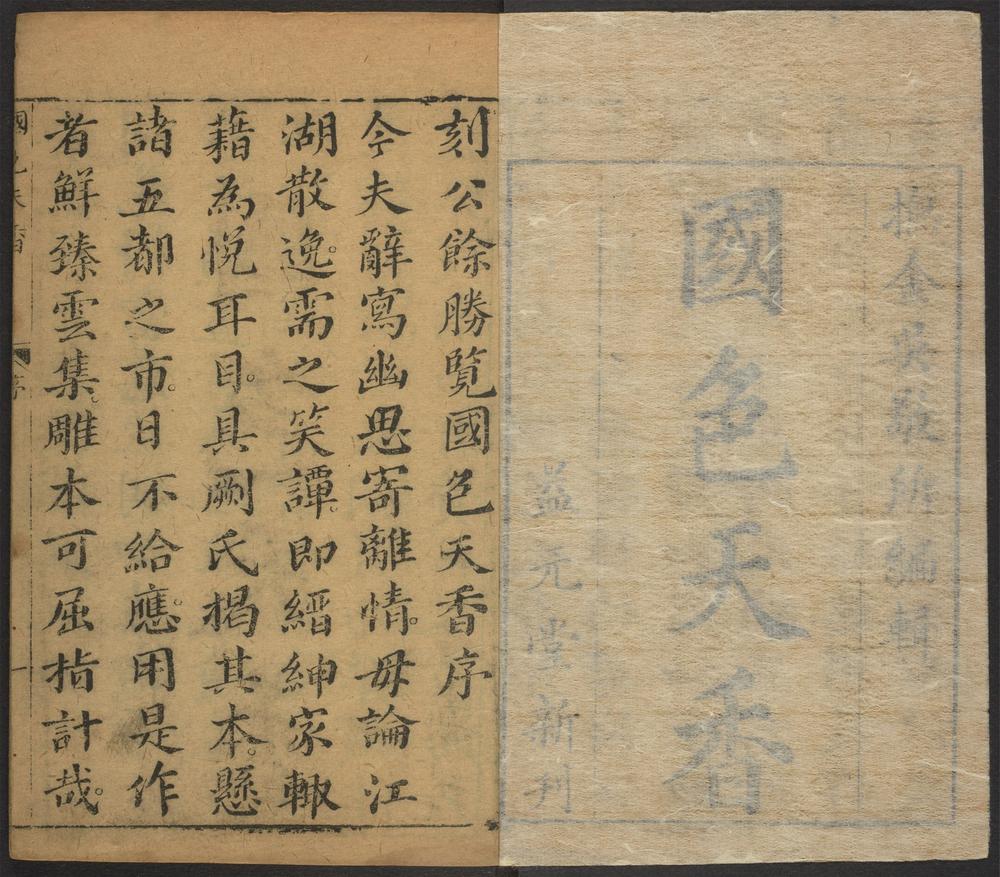 撫金吳敬所編輯
國色天香
益元堂新刊
刻公餘勝覽國色天香序
今夫辭寫幽思寄離情。毋論江
湖散逸。需之笑譚。即縉紳家輙
藉為悅耳目。具劂氏揭其本。懸
諸五都之市。日不給應。用是作
者鮮臻雲集。雕本可屈指計哉。
國色天香
序
一